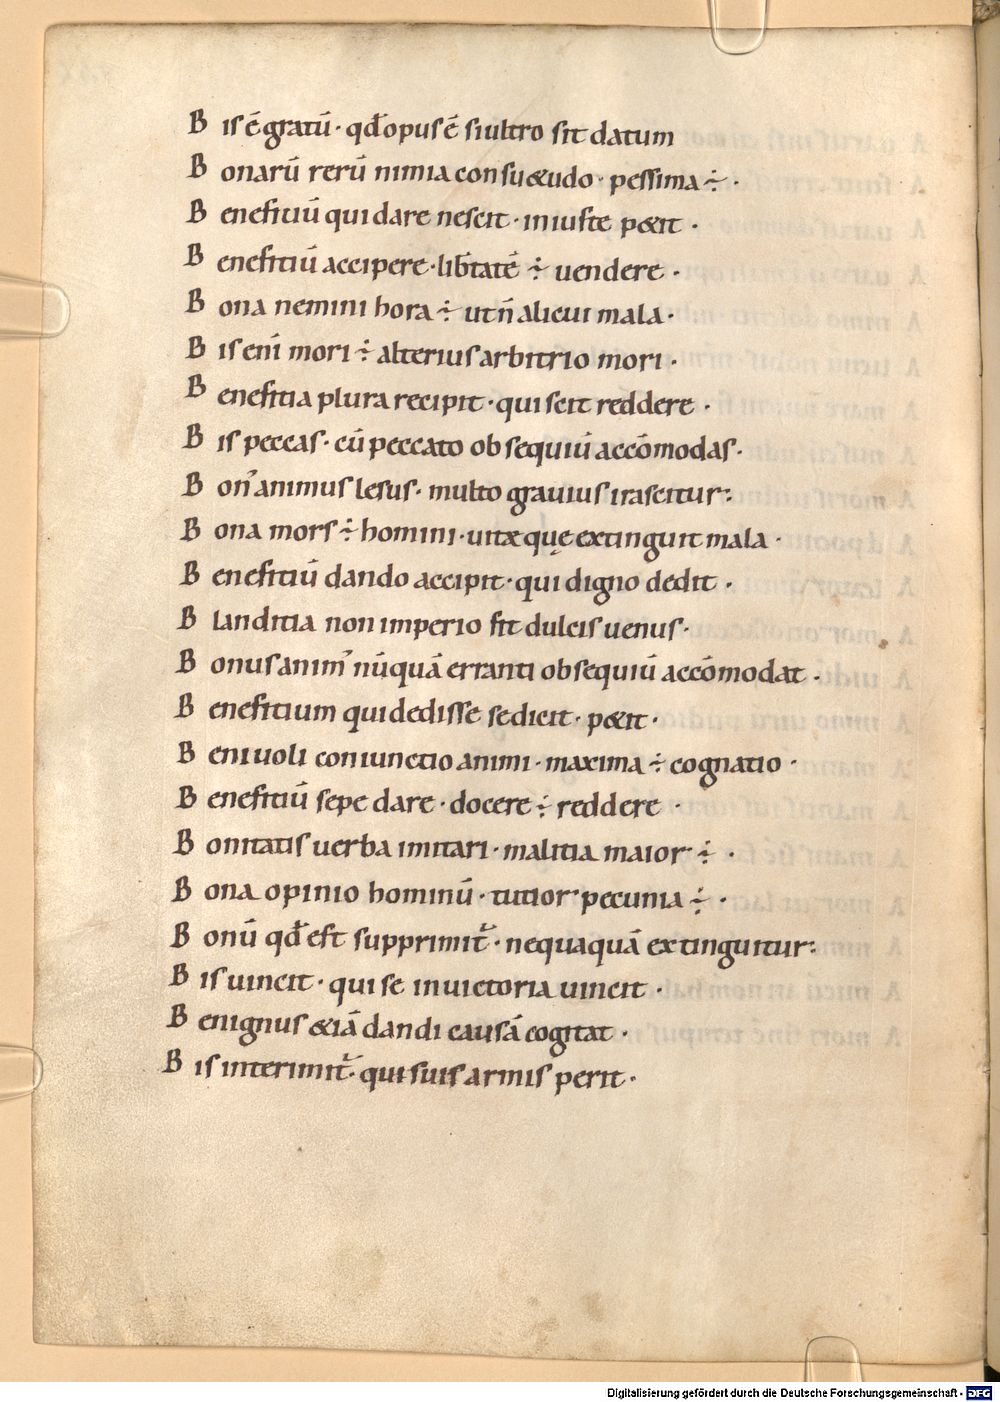 B is ē gratū · qđ opus ē si ultro sit datum
B onarū rerū nimia consu&udo · pessima ÷ ·
B enefitiū qui dare nescit · iniuste p&it ·
B enefitiū accipere · lib̄tatē ÷ uendere ·
B ona nemini hora ÷ ut n̄ alicui mala ·
B is eni mori ÷ alterius arbitrio mori ·
B enefitia plura recipit · qui scit reddere ·
B is peccas · cū peccato obsequiū accōmodas ·
B on᾽ animus lesus · multo grauius irascitur :
B ona mors ÷ homini · uitæ quę extinguit mala ·
B enefitiū dando accipit · qui digno dedit ·
B landitia non imperio fit dulcis uenus ·
B onus anim᾽ nūquā erranti obsequiū accōmodat ·
B enefitium qui dedisse se dicit · p&it ·
B eniuoli coniunctio animi · maxima ÷ cognatio ·
B enefitiū sepe dare · docere ÷ reddere ·
B onitatis uerba imitari · malitia maior ÷ ·
B ona opinio hominū · tutior pecunia ÷ ·
B onū qđ est supprimit᷑ · nequaquā extinguitur :
B is uincit · qui se in uictoria uincit ·
B enignus &iā dandi causā cogitat ·
B is interimit᷑ · qui suis armis perit ·
Digitalisierung gefördert durch die Deutsche Forschungsgemeinschaft - DFG